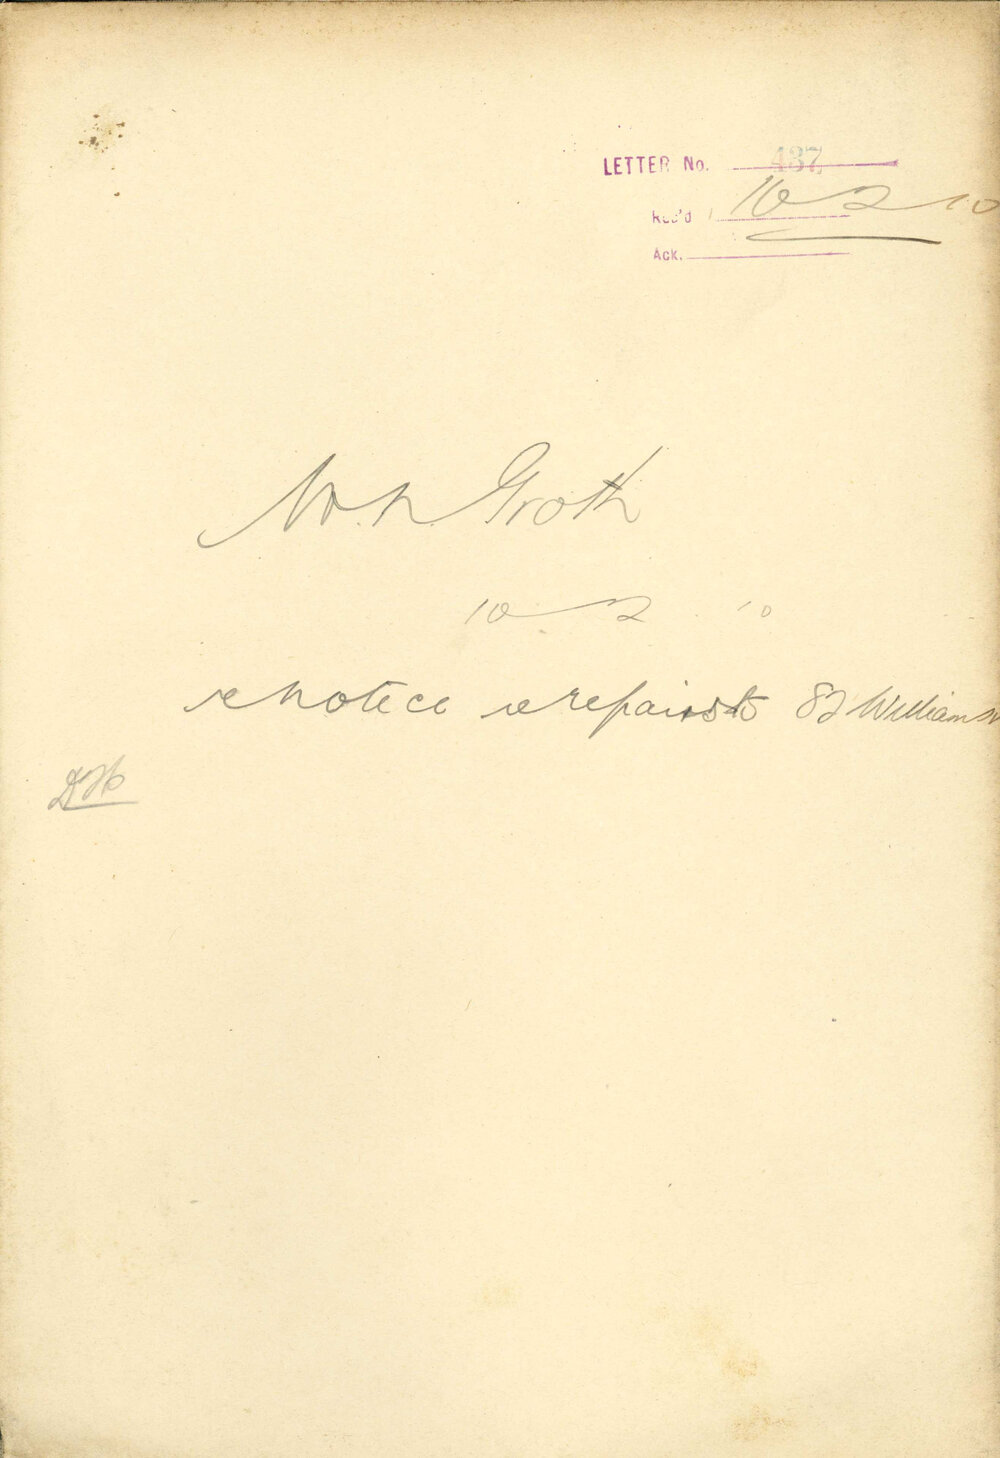 LETTER No. 437
Rec'd 10 2 10
Ack.
Groth
10 2 10
re notice re repairs to 82 William